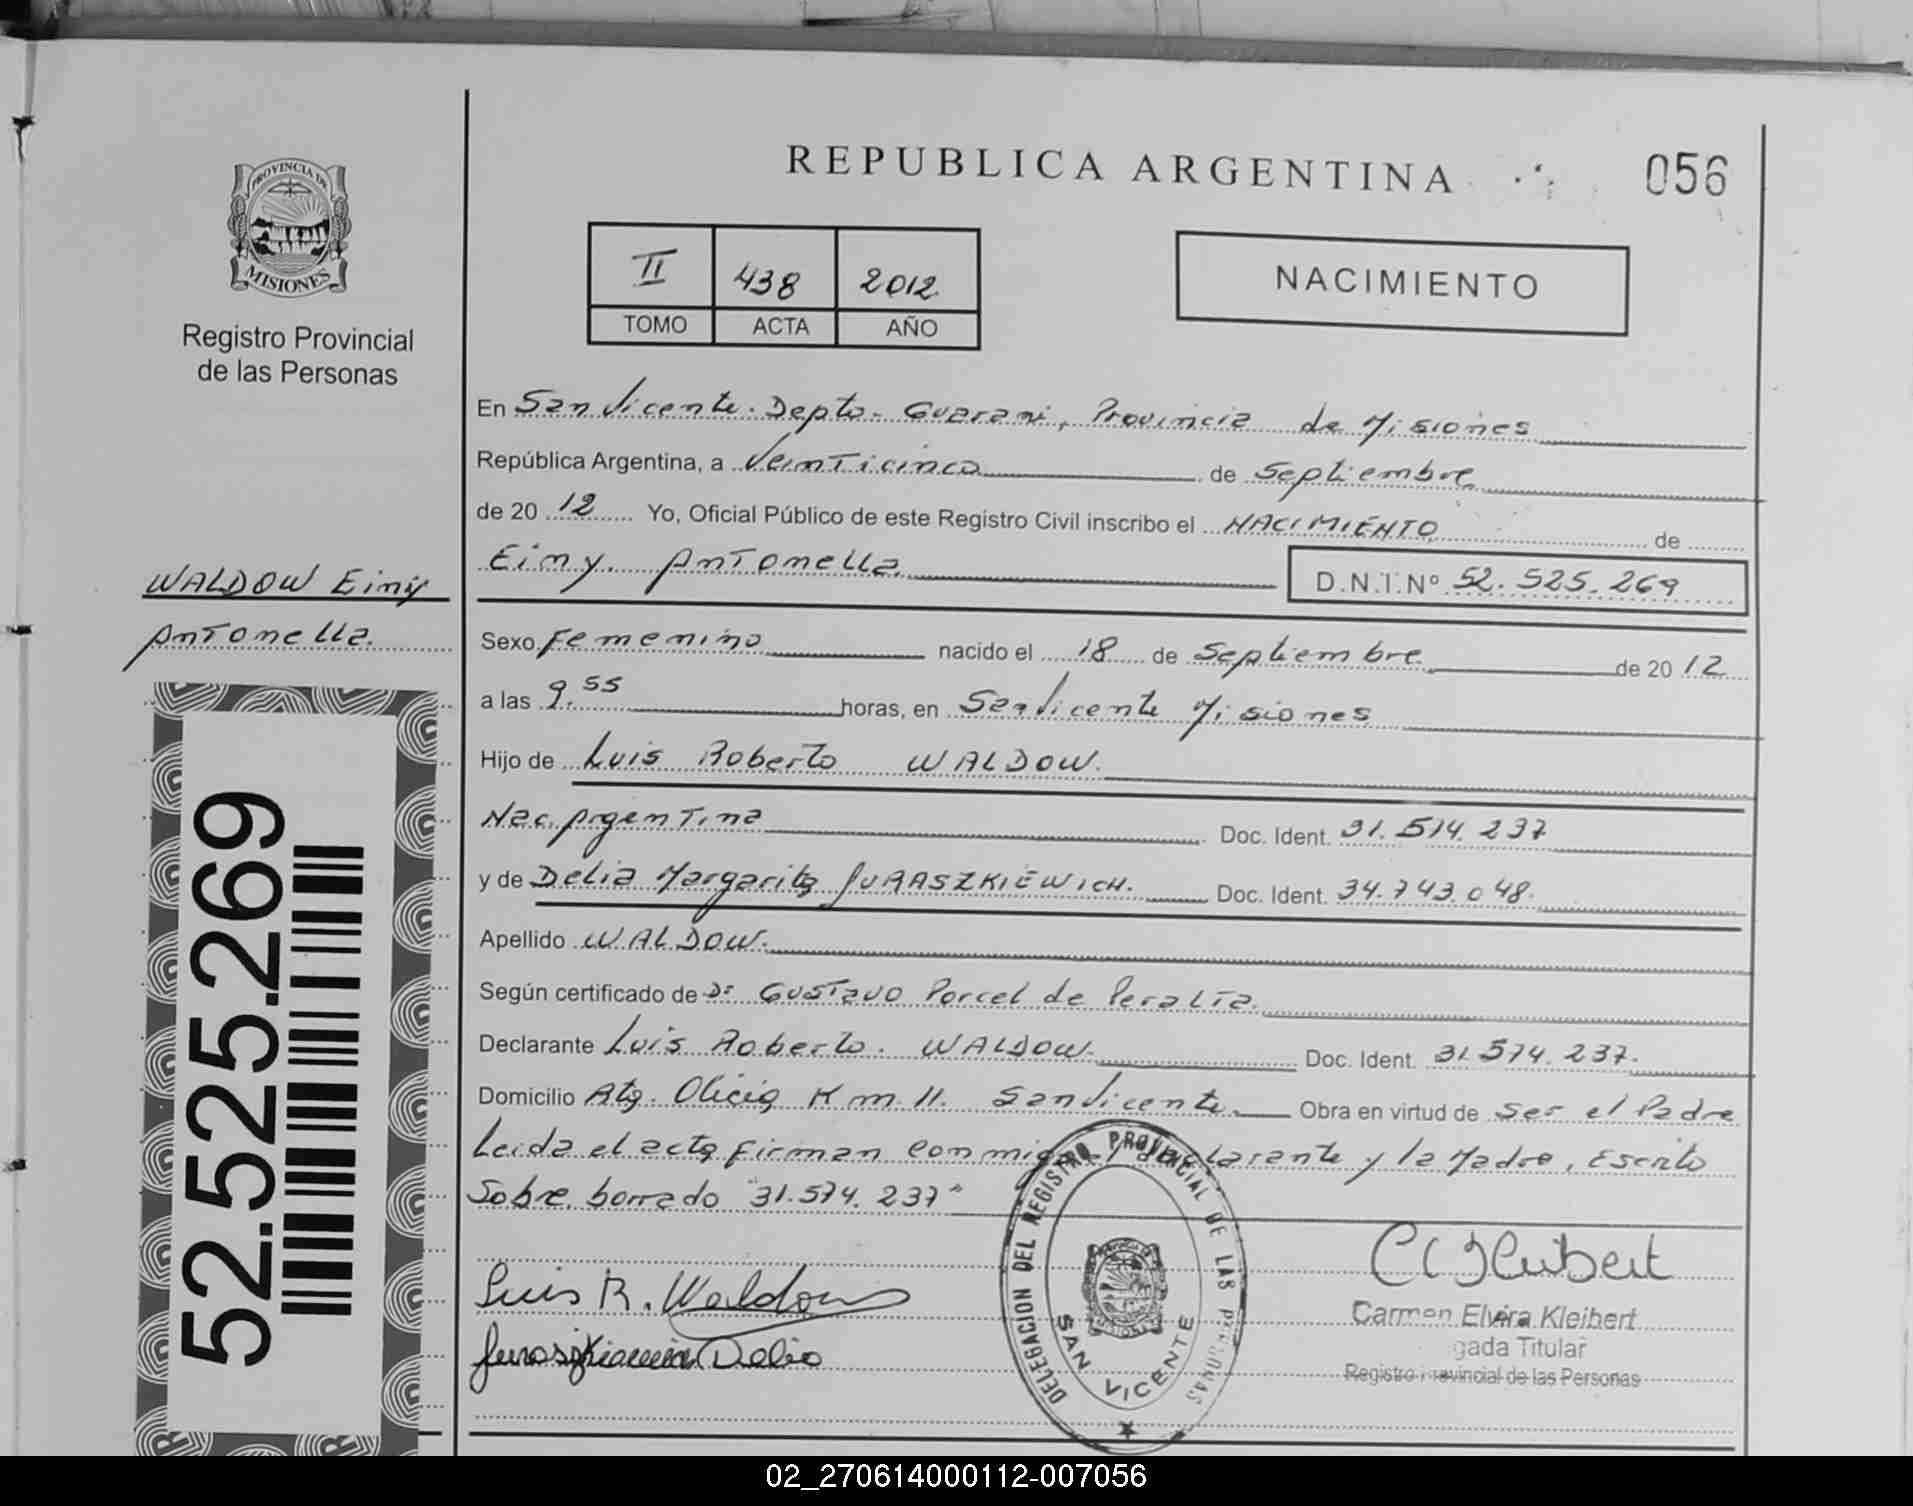 REPUBLICA ARGENTINA
056
PROVINCIA DE
MISIONES
Registro Provincial
de las Personas
II 438 2012
TOMO ACTA AÑO
NACIMIENTO
En San Vicente. Depto. Guarani, Provincia de Misiones
República Argentina, a Veinticinco de Septiembre
de 20 12 Yo, Oficial Público de este Registro Civil inscribo el NACIMIENTO de
Einy Antonella D.N.I.Nº 52.525.269
WALDOW Einy
Antonella.
Sexo Femenino nacido el 18 de Septiembre de 20 12
a las 9.55 horas, en San Vicente Misiones
Hijo de Luis Roberto WALDOW.
Nac. Argentina Doc. Ident. 31.574.237
y de Delia Margarita JURASZKIEWICH. Doc. Ident. 34.743.048.
Apellido WALDOW.
Según certificado de Dr Gustavo Porcel de Peralta.
Declarante Luis Roberto. WALDOW. Doc. Ident. 31.574.237.
Domicilio Km. 11. San Vicente. Obra en virtud de Ser el Padre
Leida el acta Firman conmigo el declarante y la Madre, Escrito
Sobre borrado "31.574.237"
52.525.269
Luis R. Waldow
Delia
DELEGACION DEL REGISTRO PROVINCIAL DE LAS PERSONAS
SAN VICENTE
Carmen Elvira Kleibert
gada Titular
Registro Provincial de las Personas
02_270614000112-007056